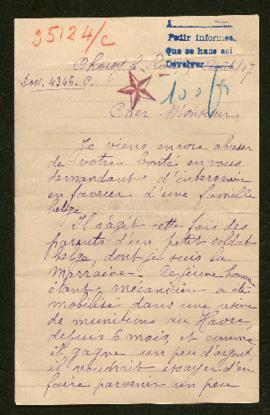 35124/c
A
Pedir informes,
Que se hace así
Devolver
Doss. 4346. C.
/17
100 f
Cher Monsieur
Je viens encore abuser
de votre bonté en vous
demandant d'intervenir
en faveur d'une famille
belge.
Il s'agit cette fois des
parents d'un petit soldat
belge, dont je suis la
Marraine. Ce jeune homme
étant mécanicien a été
mobilisé dans une usine
de munitions au Havre,
depuis 6 mois, et comme
il gagne un peu d'argent,
il voudrait essayer d'en
faire parvenir un peu